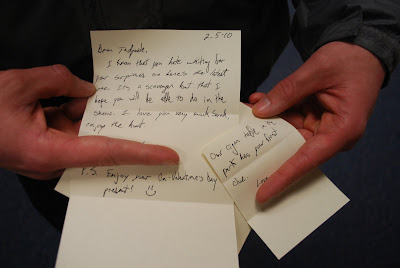 2-5-10
Dear Tadpole,
I know that you hate waiting for
your surprises so here's the latest
one. It's a scavenger hunt that I
hope you will be able to do in the
snow. I love you very much Sarah,
enjoy the hunt
P.S. Enjoy your Un-Valentine's Day
present!
Our open table is the
park has your first
clue. Love